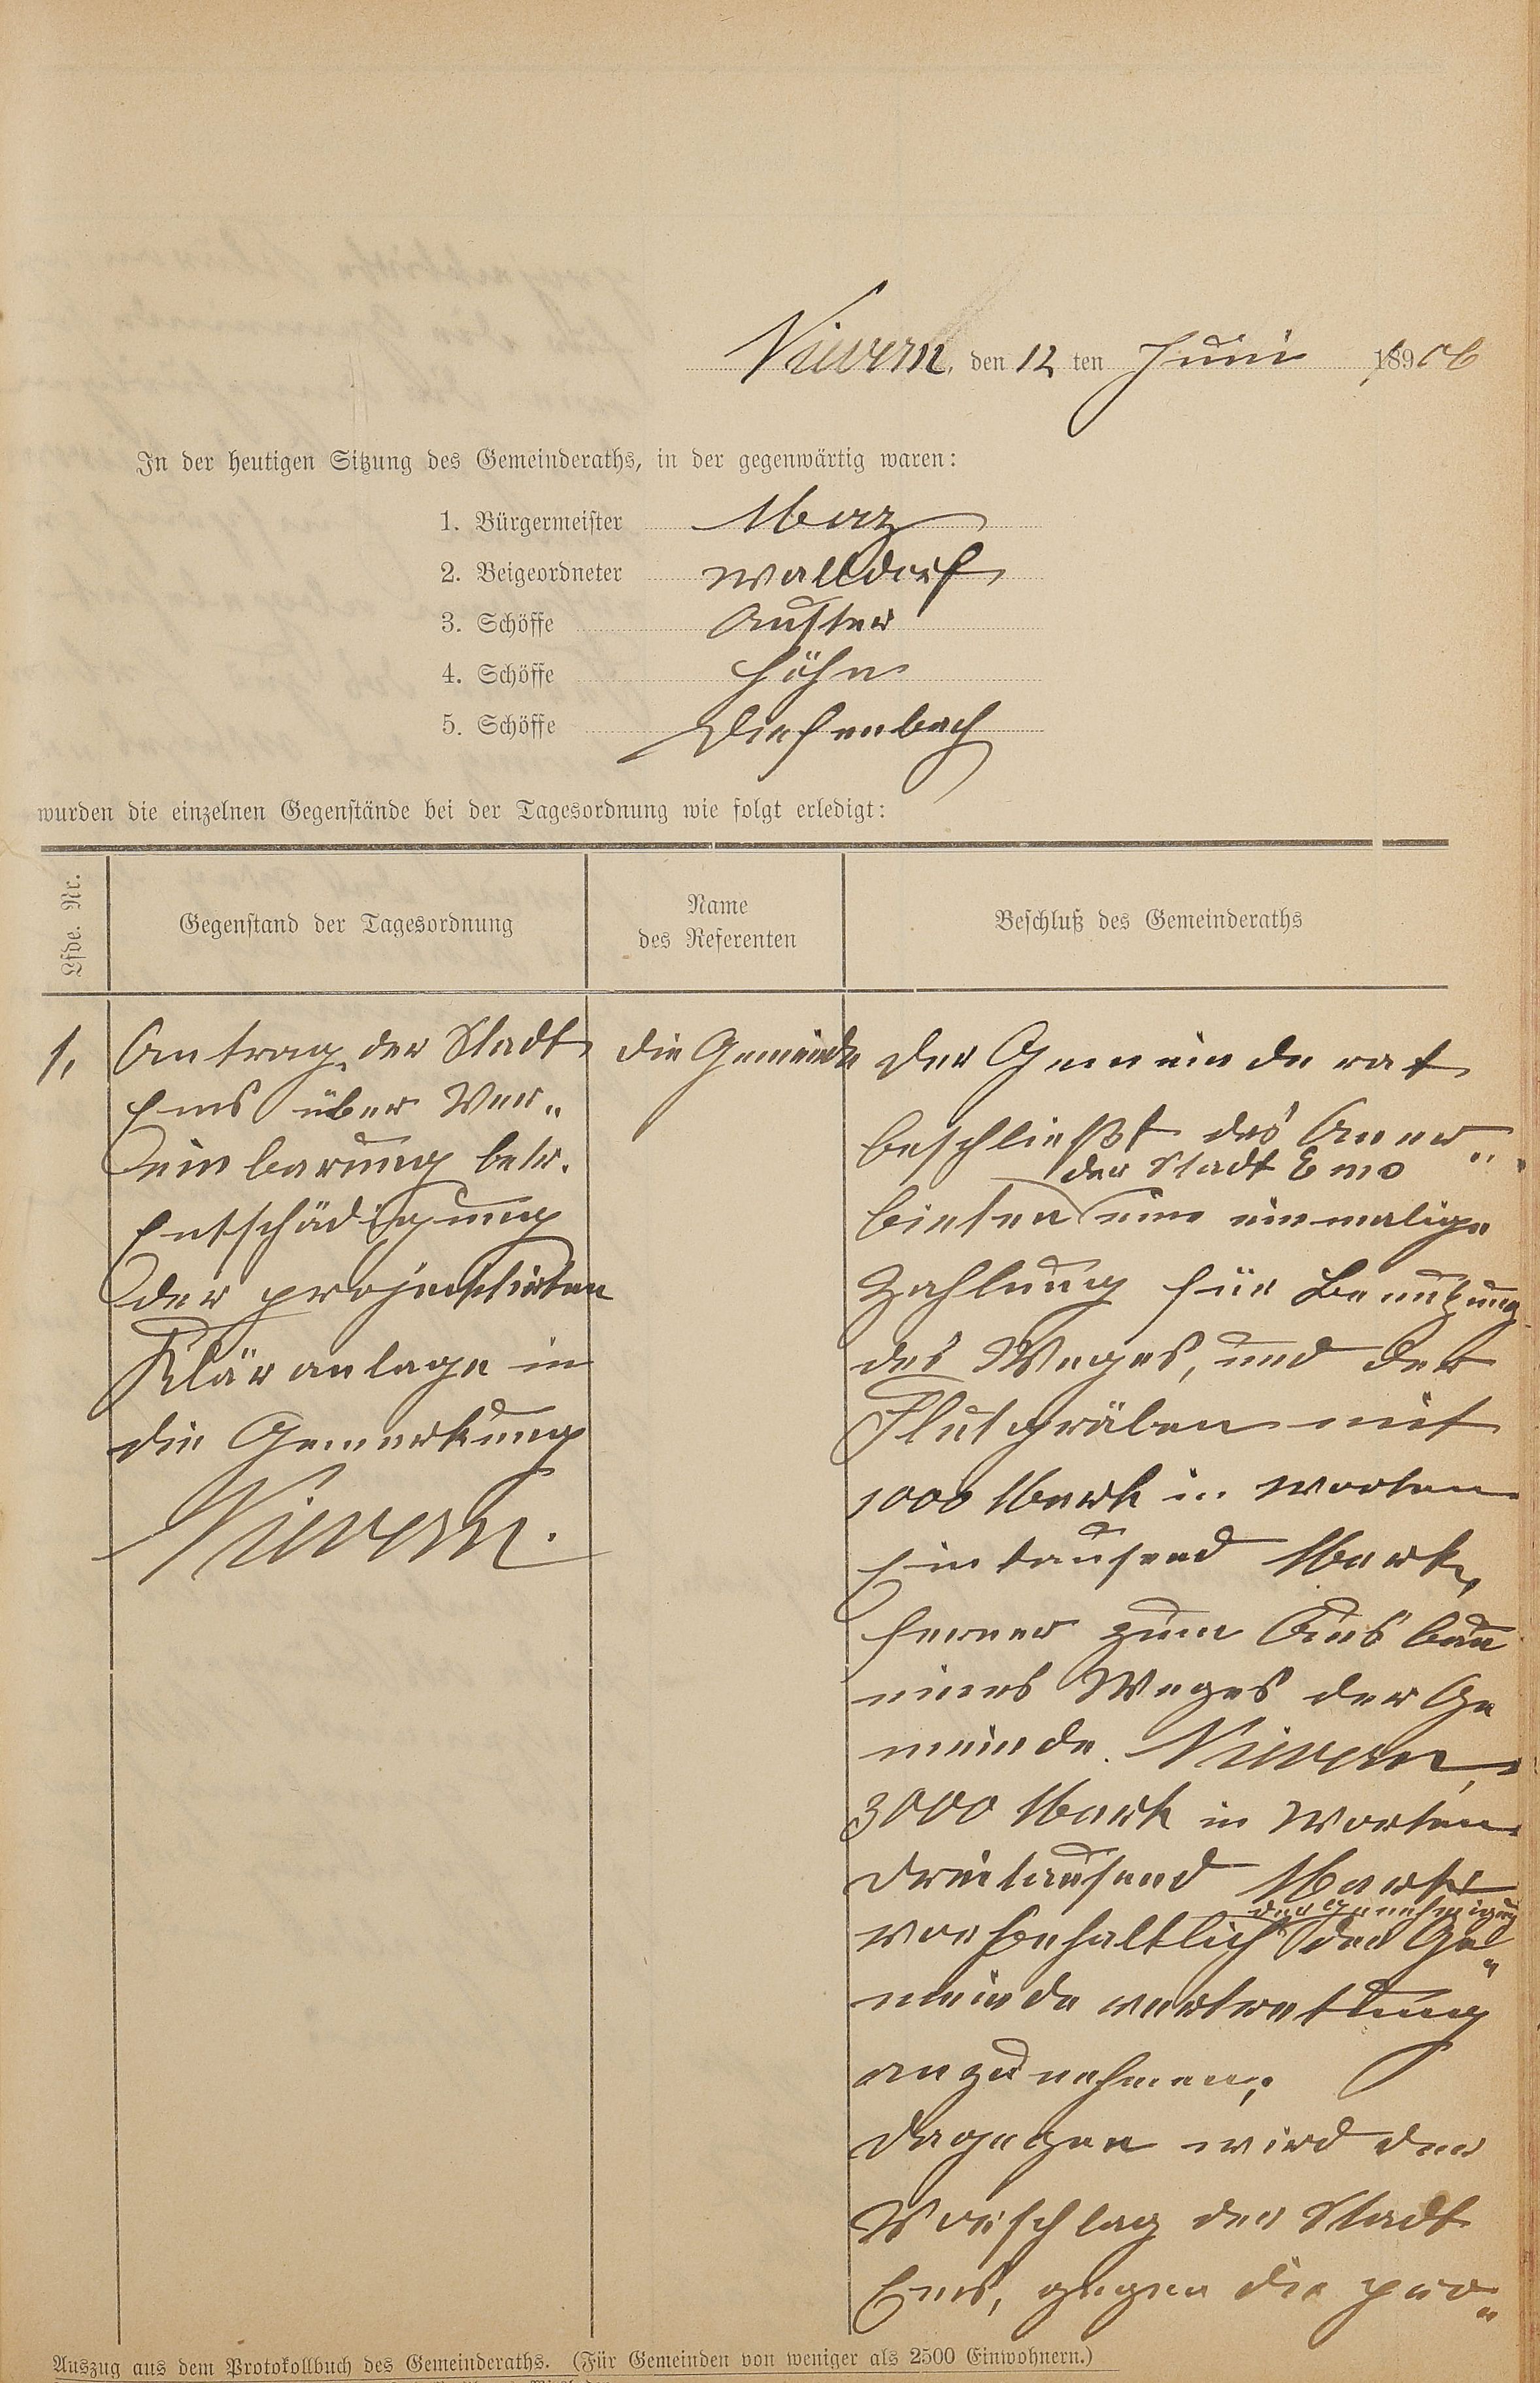 Nievern, den 12 ten Juni 1906
In der heutigen Sitzung des Gemeinderaths, in der gegenwärtig waren:
1. Bürgermeister Marz
2. Beigeordneter Walldorf
3. Schöffe Auster
4. Schöffe Höhn
5. Schöffe Diefenbach
wurden die einzelnen Gegenstände bei der Tagesordnung wie folgt erledigt:
Lfde. Nr.
Gegenstand der Tagesordnung
Name
des Referenten
Beschluß des Gemeinderaths
1.
Antrag der Stadt
Ems über Ver„
einbarung betr.
Entschädigung
der projecktirten
Kläranlage in
die Gemerkung
Nievern.
die Gemeinde
Der Gemeinderat
beschließt das Aner„
der Stadt Ems
bieten eine einmalige
Zahlung für Benutzung
des Weges, und der
Flutgräben mit
1000 Mark in Worten
Eintausend Mark,
ferner zum Ausbau
eines Weges der Ge
meinde Nievern,
3000 Mark in Worten
Dreitausend Mark
der Genehmigung
vorbehaltlich der Ge„
meinde vertrettung
anzunehmen;
Dagegen wird der
Vorschlag der Stadt
Ems, gegen die pro„
Auszug aus dem Protokollbuch des Gemeinderaths. (Für Gemeinden von weniger als 2500 Einwohnern.)